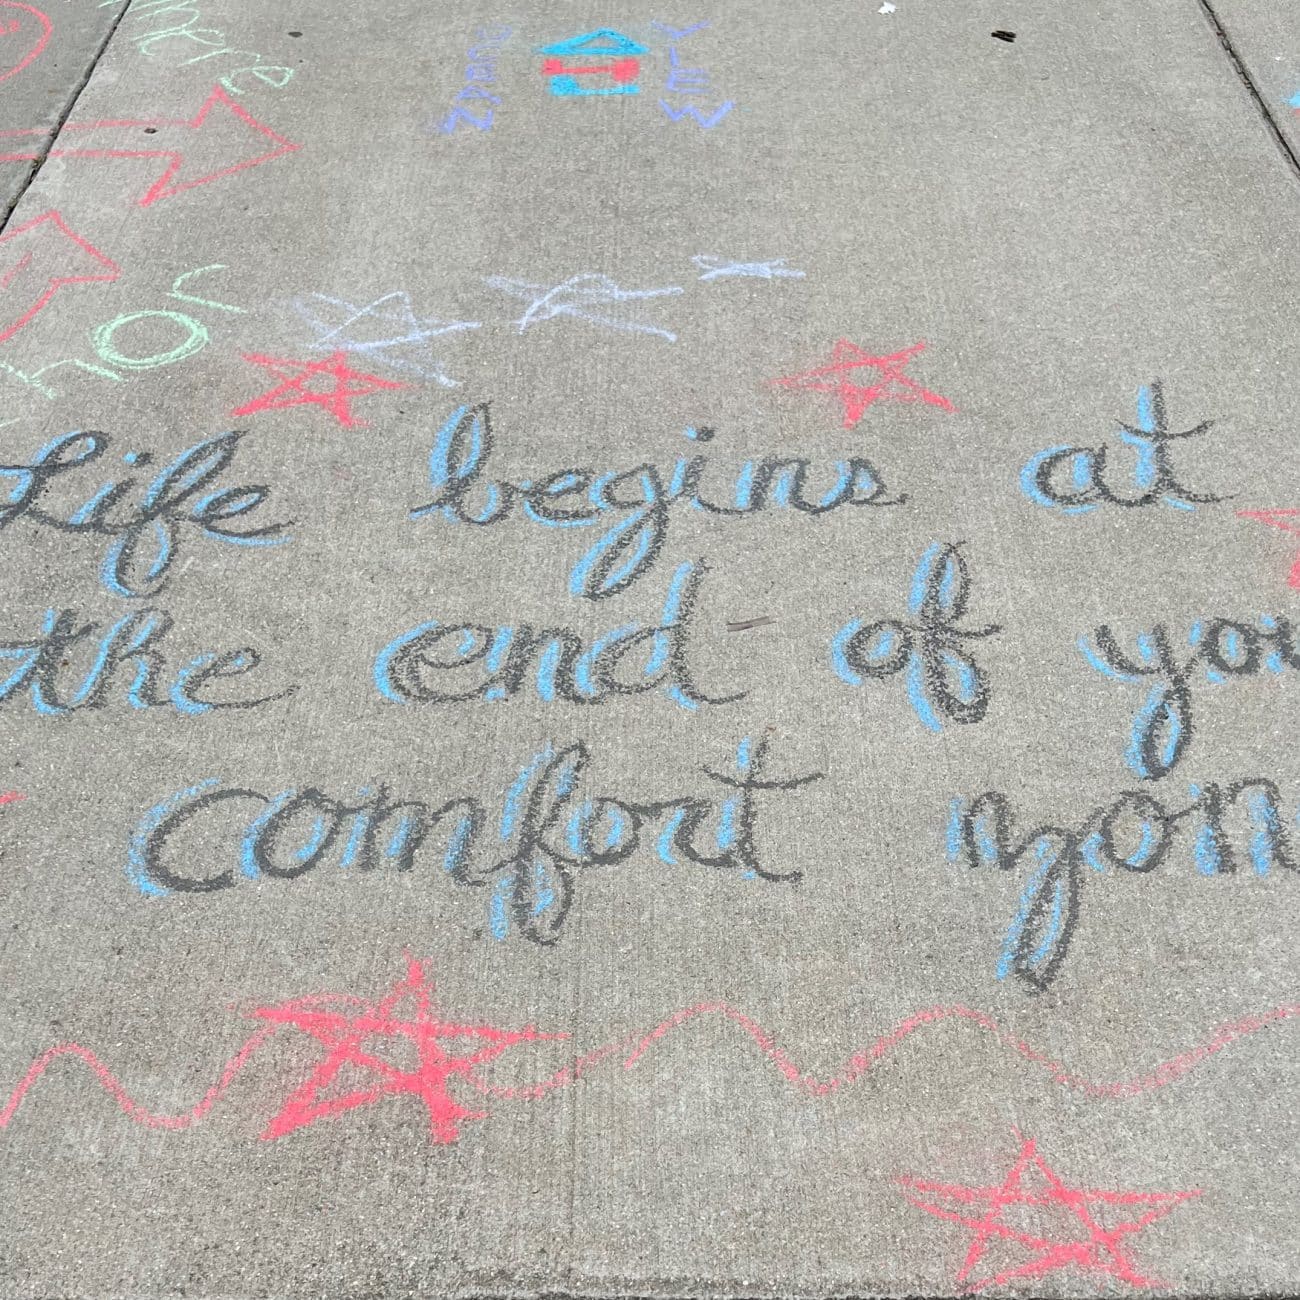 here
VIEW
or
Life begins at
the end of you
comfort zon